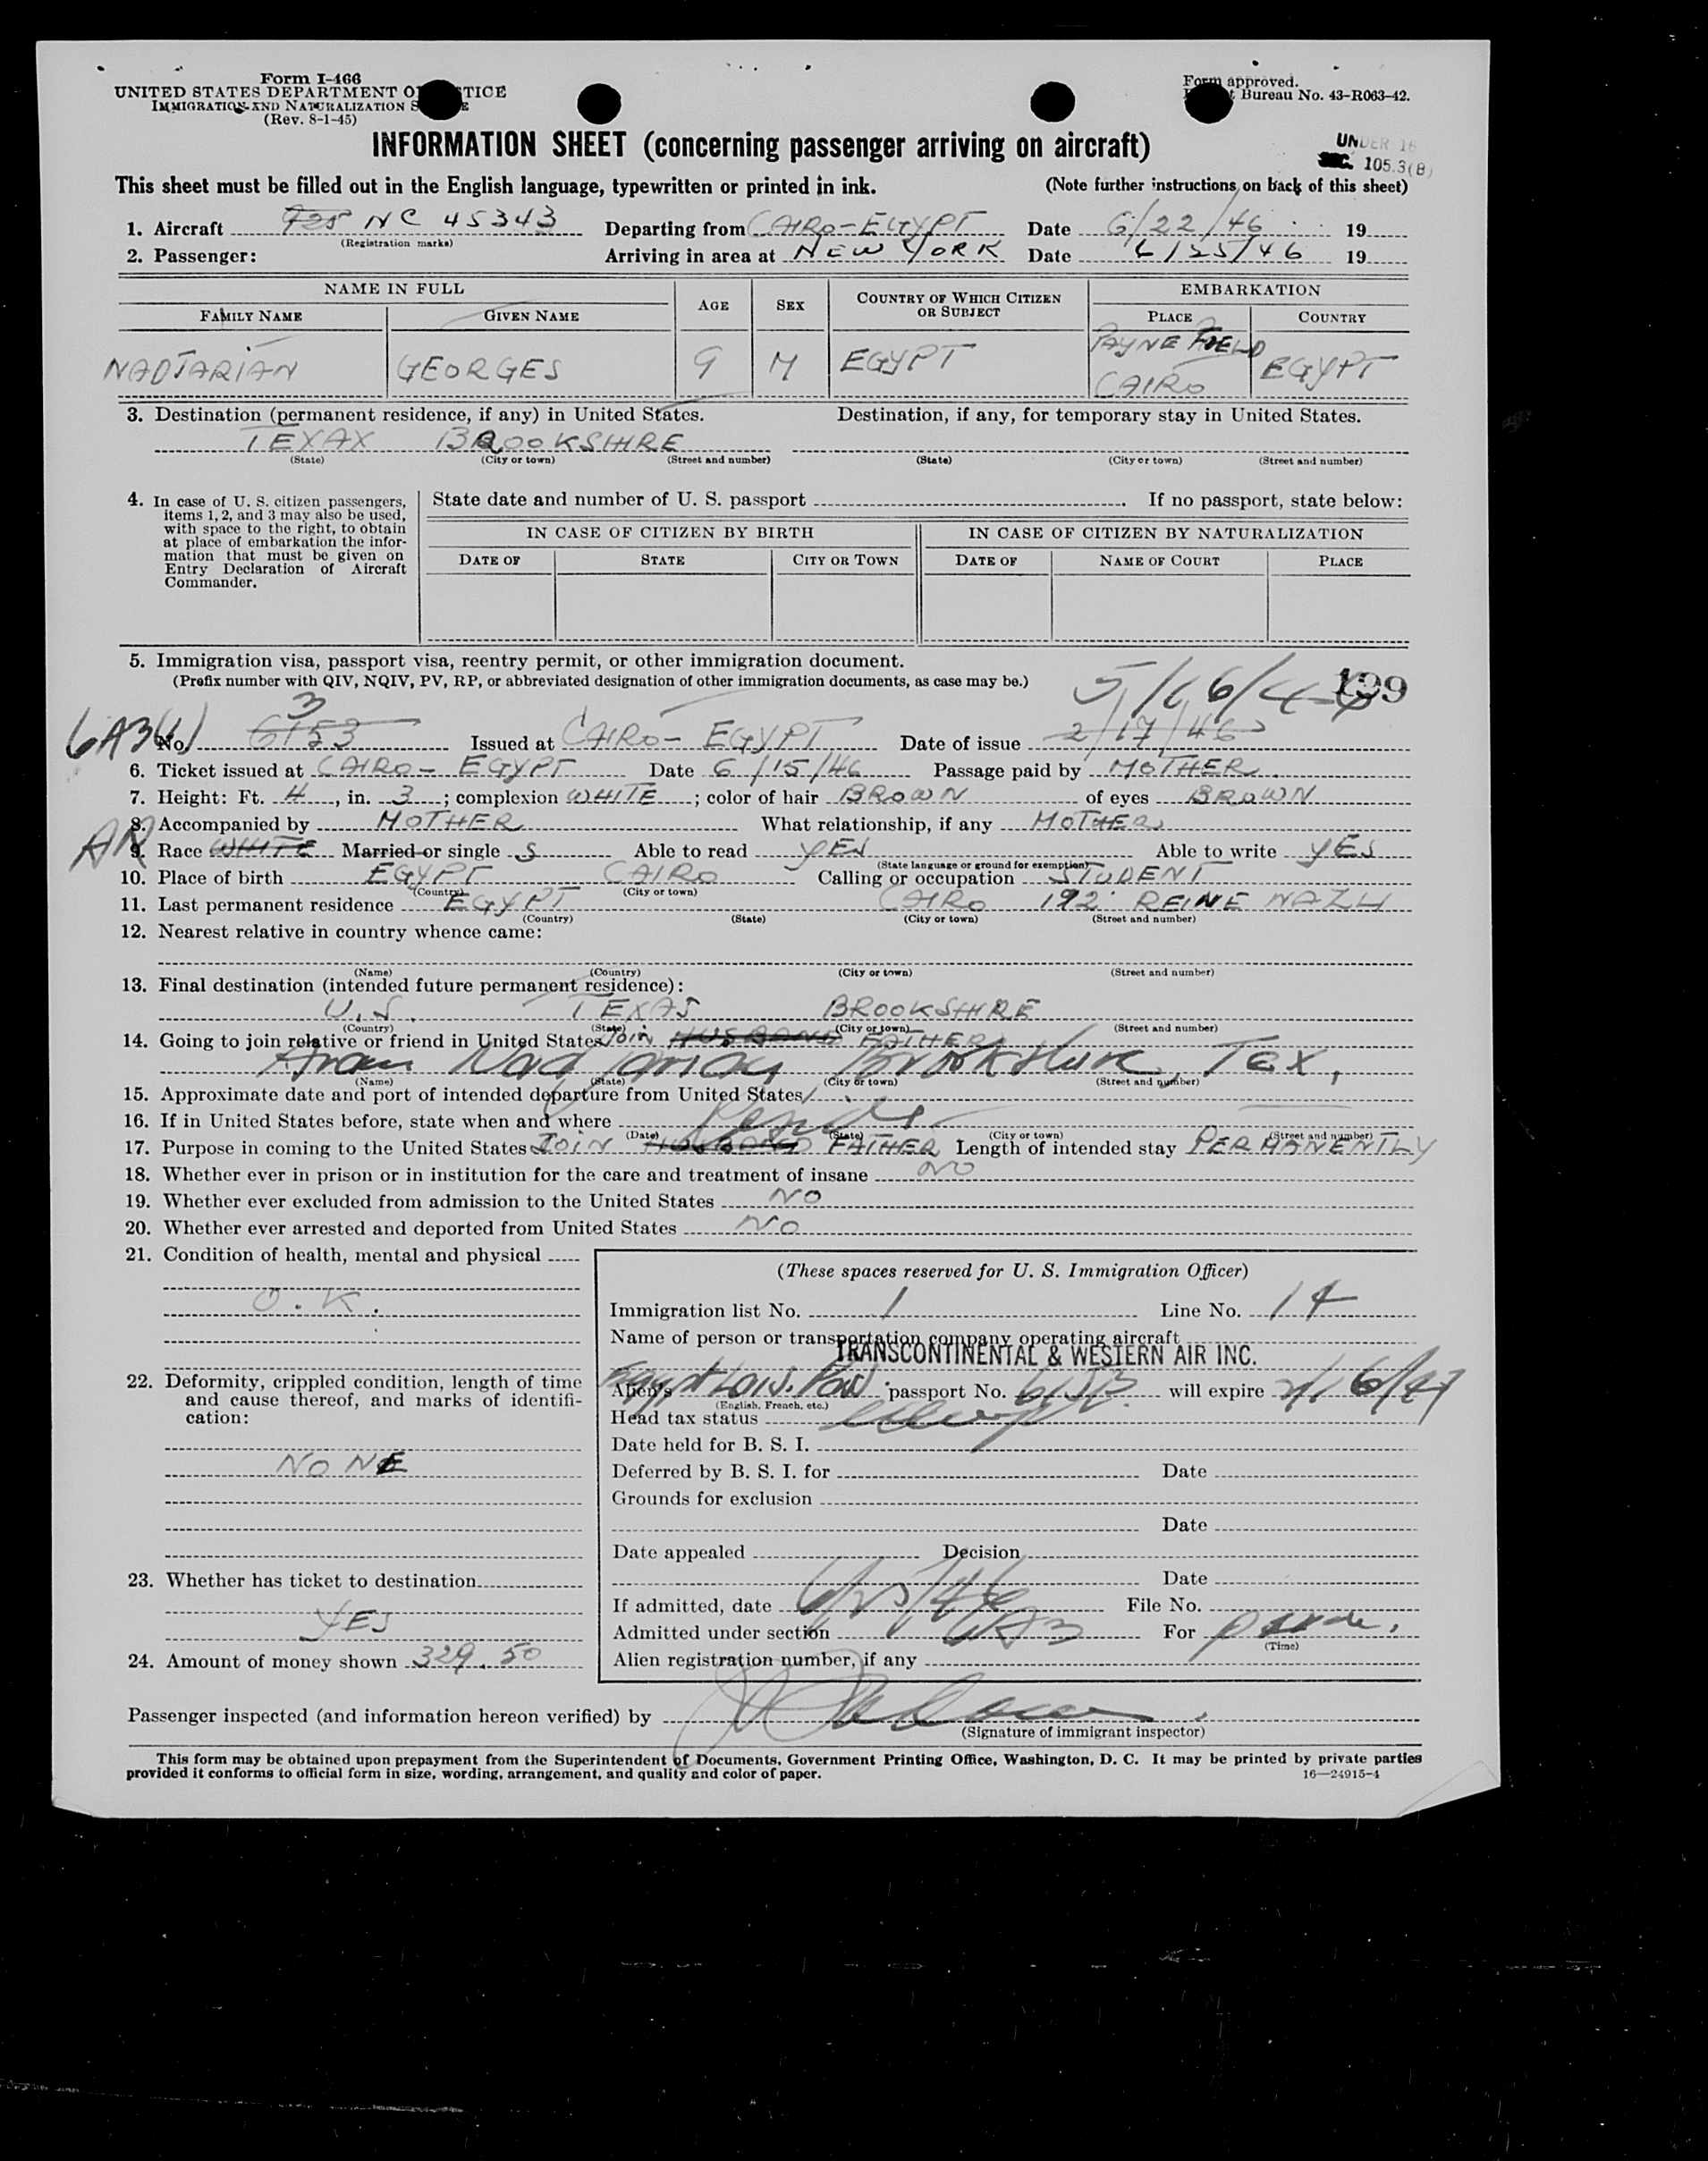 Form I-466
UNITED STATES DEPARTMENT OF JUSTICE
IMMIGRATION AND NATURALIZATION SERVICE
(Rev. 8-1-45)
Form approved.
Bureau No. 43-R063-42.
INFORMATION SHEET (concerning passenger arriving on aircraft)
UNDER 16
SEC. 105.3(B)
This sheet must be filled out in the English language, typewritten or printed in ink. (Note further instructions on back of this sheet)
1. Aircraft 925 NC 45343 Departing from CAIRO-EGYPT Date 6/22/46 19
(Registration marks)
2. Passenger: Arriving in area at NEW YORK Date 6/25/46 19
NAME IN FULL AGE SEX COUNTRY OF WHICH CITIZEN OR SUBJECT EMBARKATION
FAMILY NAME GIVEN NAME PLACE COUNTRY
NADJARIAN GEORGES 9 M EGYPT PAYNE FIELD CAIRO EGYPT
3. Destination (permanent residence, if any) in United States. Destination, if any, for temporary stay in United States.
TEXAX BROOKSHIRE
(State) (City or town) (Street and number) (State) (City or town) (Street and number)
4. In case of U. S. citizen passengers, items 1, 2, and 3 may also be used, with space to the right, to obtain at place of embarkation the information that must be given on Entry Declaration of Aircraft Commander.
State date and number of U. S. passport . If no passport, state below:
IN CASE OF CITIZEN BY BIRTH IN CASE OF CITIZEN BY NATURALIZATION
DATE OF STATE CITY OR TOWN DATE OF NAME OF COURT PLACE
5. Immigration visa, passport visa, reentry permit, or other immigration document.
(Prefix number with QIV, NQIV, PV, RP, or abbreviated designation of other immigration documents, as case may be.)
5/16/46 199
6A3(1) No. 6153 3 Issued at CAIRO- EGYPT Date of issue 2/17/46
6. Ticket issued at CAIRO- EGYPT Date 6/15/46 Passage paid by MOTHER
7. Height: Ft. 4, in. 3; complexion WHITE; color of hair BROWN of eyes BROWN
8. Accompanied by MOTHER What relationship, if any MOTHER
AR
9. Race WHITE Married or single S Able to read YES Able to write YES
(State language or ground for exemption)
10. Place of birth EGYPT CAIRO Calling or occupation STUDENT
(Country) (City or town)
11. Last permanent residence EGYPT CAIRO 192 REINE NAZLI
(Country) (State) (City or town) (Street and number)
12. Nearest relative in country whence came:
(Name) (Country) (City or town) (Street and number)
13. Final destination (intended future permanent residence):
U.S. TEXAS BROOKSHIRE
(Country) (State) (City or town) (Street and number)
14. Going to join relative or friend in United States JOIN HUSBAND FATHER
Aram Nadjarian Brookshire, Tex.,
(Name) (State) (City or town) (Street and number)
15. Approximate date and port of intended departure from United States
16. If in United States before, state when and where
(Date) (State) (City or town) (Street and number)
17. Purpose in coming to the United States JOIN HUSBAND FATHER Length of intended stay PERMANENTLY
18. Whether ever in prison or in institution for the care and treatment of insane NO
19. Whether ever excluded from admission to the United States NO
20. Whether ever arrested and deported from United States NO
21. Condition of health, mental and physical
O.K.
22. Deformity, crippled condition, length of time and cause thereof, and marks of identification:
NONE
23. Whether has ticket to destination
YES
24. Amount of money shown 329.50
(These spaces reserved for U. S. Immigration Officer)
Immigration list No. 1 Line No. 14
Name of person or transportation company operating aircraft
TRANSCONTINENTAL & WESTERN AIR INC.
Alien's passport No. 6153 will expire
(English, French, etc.)
Head tax status
Date held for B. S. I.
Deferred by B. S. I. for Date
Grounds for exclusion
Date
Date appealed Decision
Date
If admitted, date 6/25/46 File No.
Admitted under section 6A3 For
(Time)
Alien registration number, if any
Passenger inspected (and information hereon verified) by
(Signature of immigrant inspector)
This form may be obtained upon prepayment from the Superintendent of Documents, Government Printing Office, Washington, D. C. It may be printed by private parties
provided it conforms to official form in size, wording, arrangement, and quality and color of paper.
16—24915-4